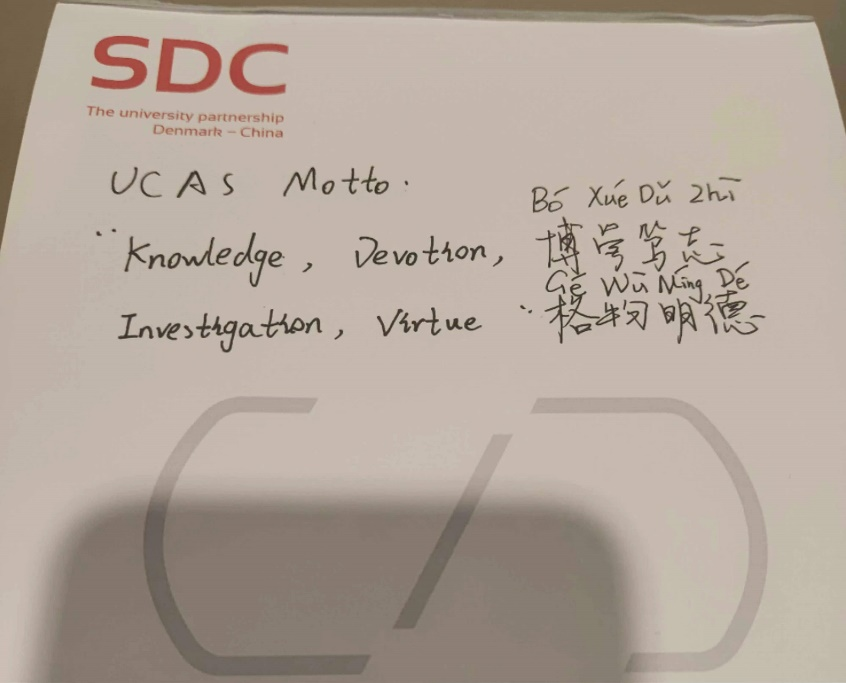 SDC
The university partnership
Denmark – China
UCAS Motto.
Bó Xué Dǔ Zhì
"Knowledge, Devotion, 博学笃志
Gé Wù Míng Dé
Investigation, Virtue" 格物明德